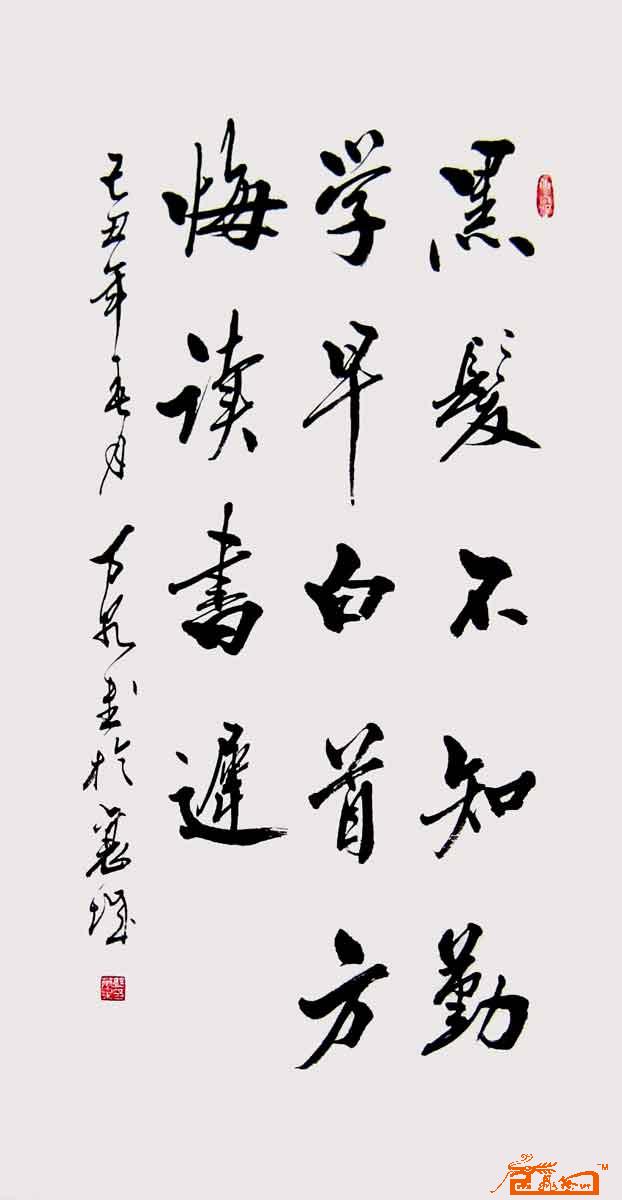 黑髮不知勤
学早白首方
悔读書遲
己丑年春月 万泉書於襄垣